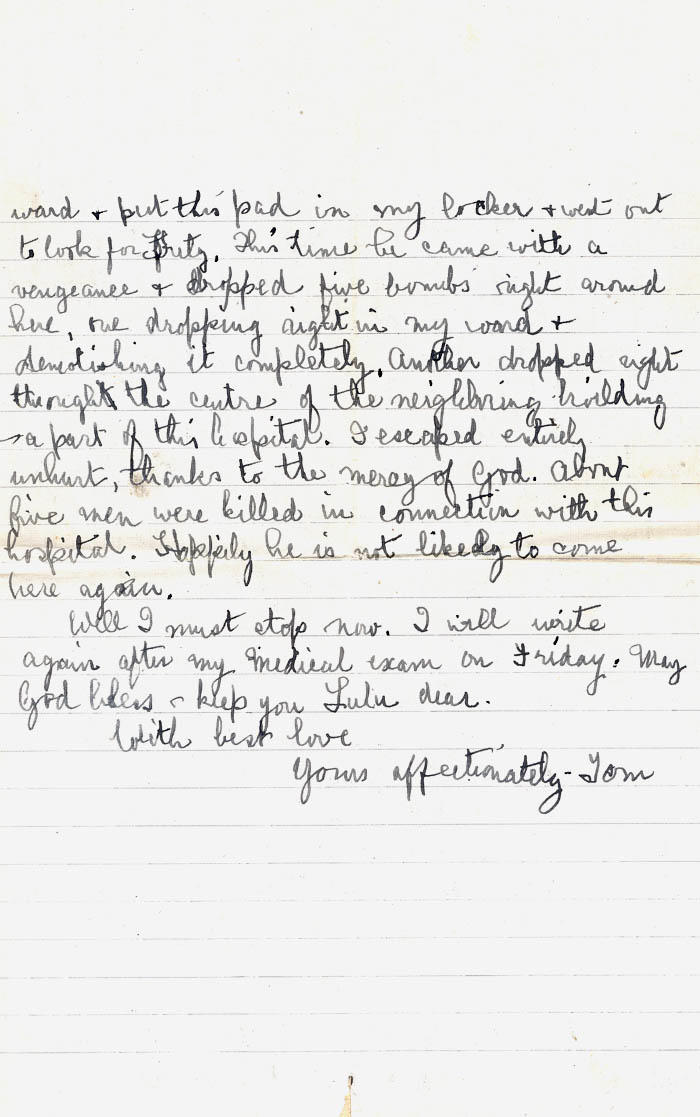 ward + put this pad in my locker + went out
to look for Fritz. This time he came with a
vengeance + dropped five bombs right around
here, one dropping right in my ward +
demolishing it completely. Another dropped right
through the centre of the neighbouring building
- a part of this hospital. I escaped entirely
unhurt, thanks to the mercy of God. About
five men were killed in connection with this
hospital. Happily he is not likely to come
here again.
Well I must stop now. I will write
again after my Medical exam on Friday. May
God bless & keep you Lulu dear.
With best love
Yours affectionately - Tom